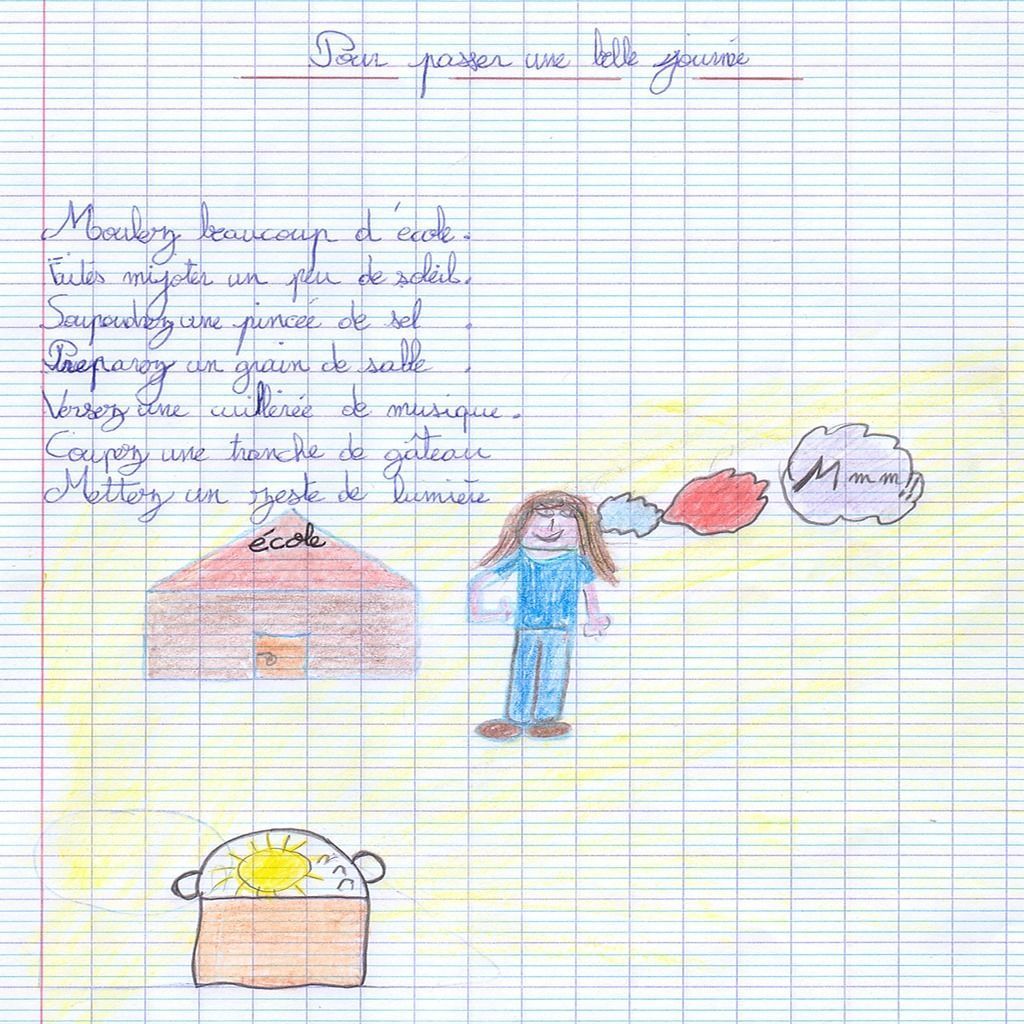 Pour passer une belle journée
Moulez beaucoup d'école.
Faites mijoter un peu de soleil.
Saupoudrez une pincée de sel.
Preparez un grain de sable.
Versez une cuillerée de musique.
Coupez une tranche de gâteau
Mettez un zeste de lumière
école
Mmm!!